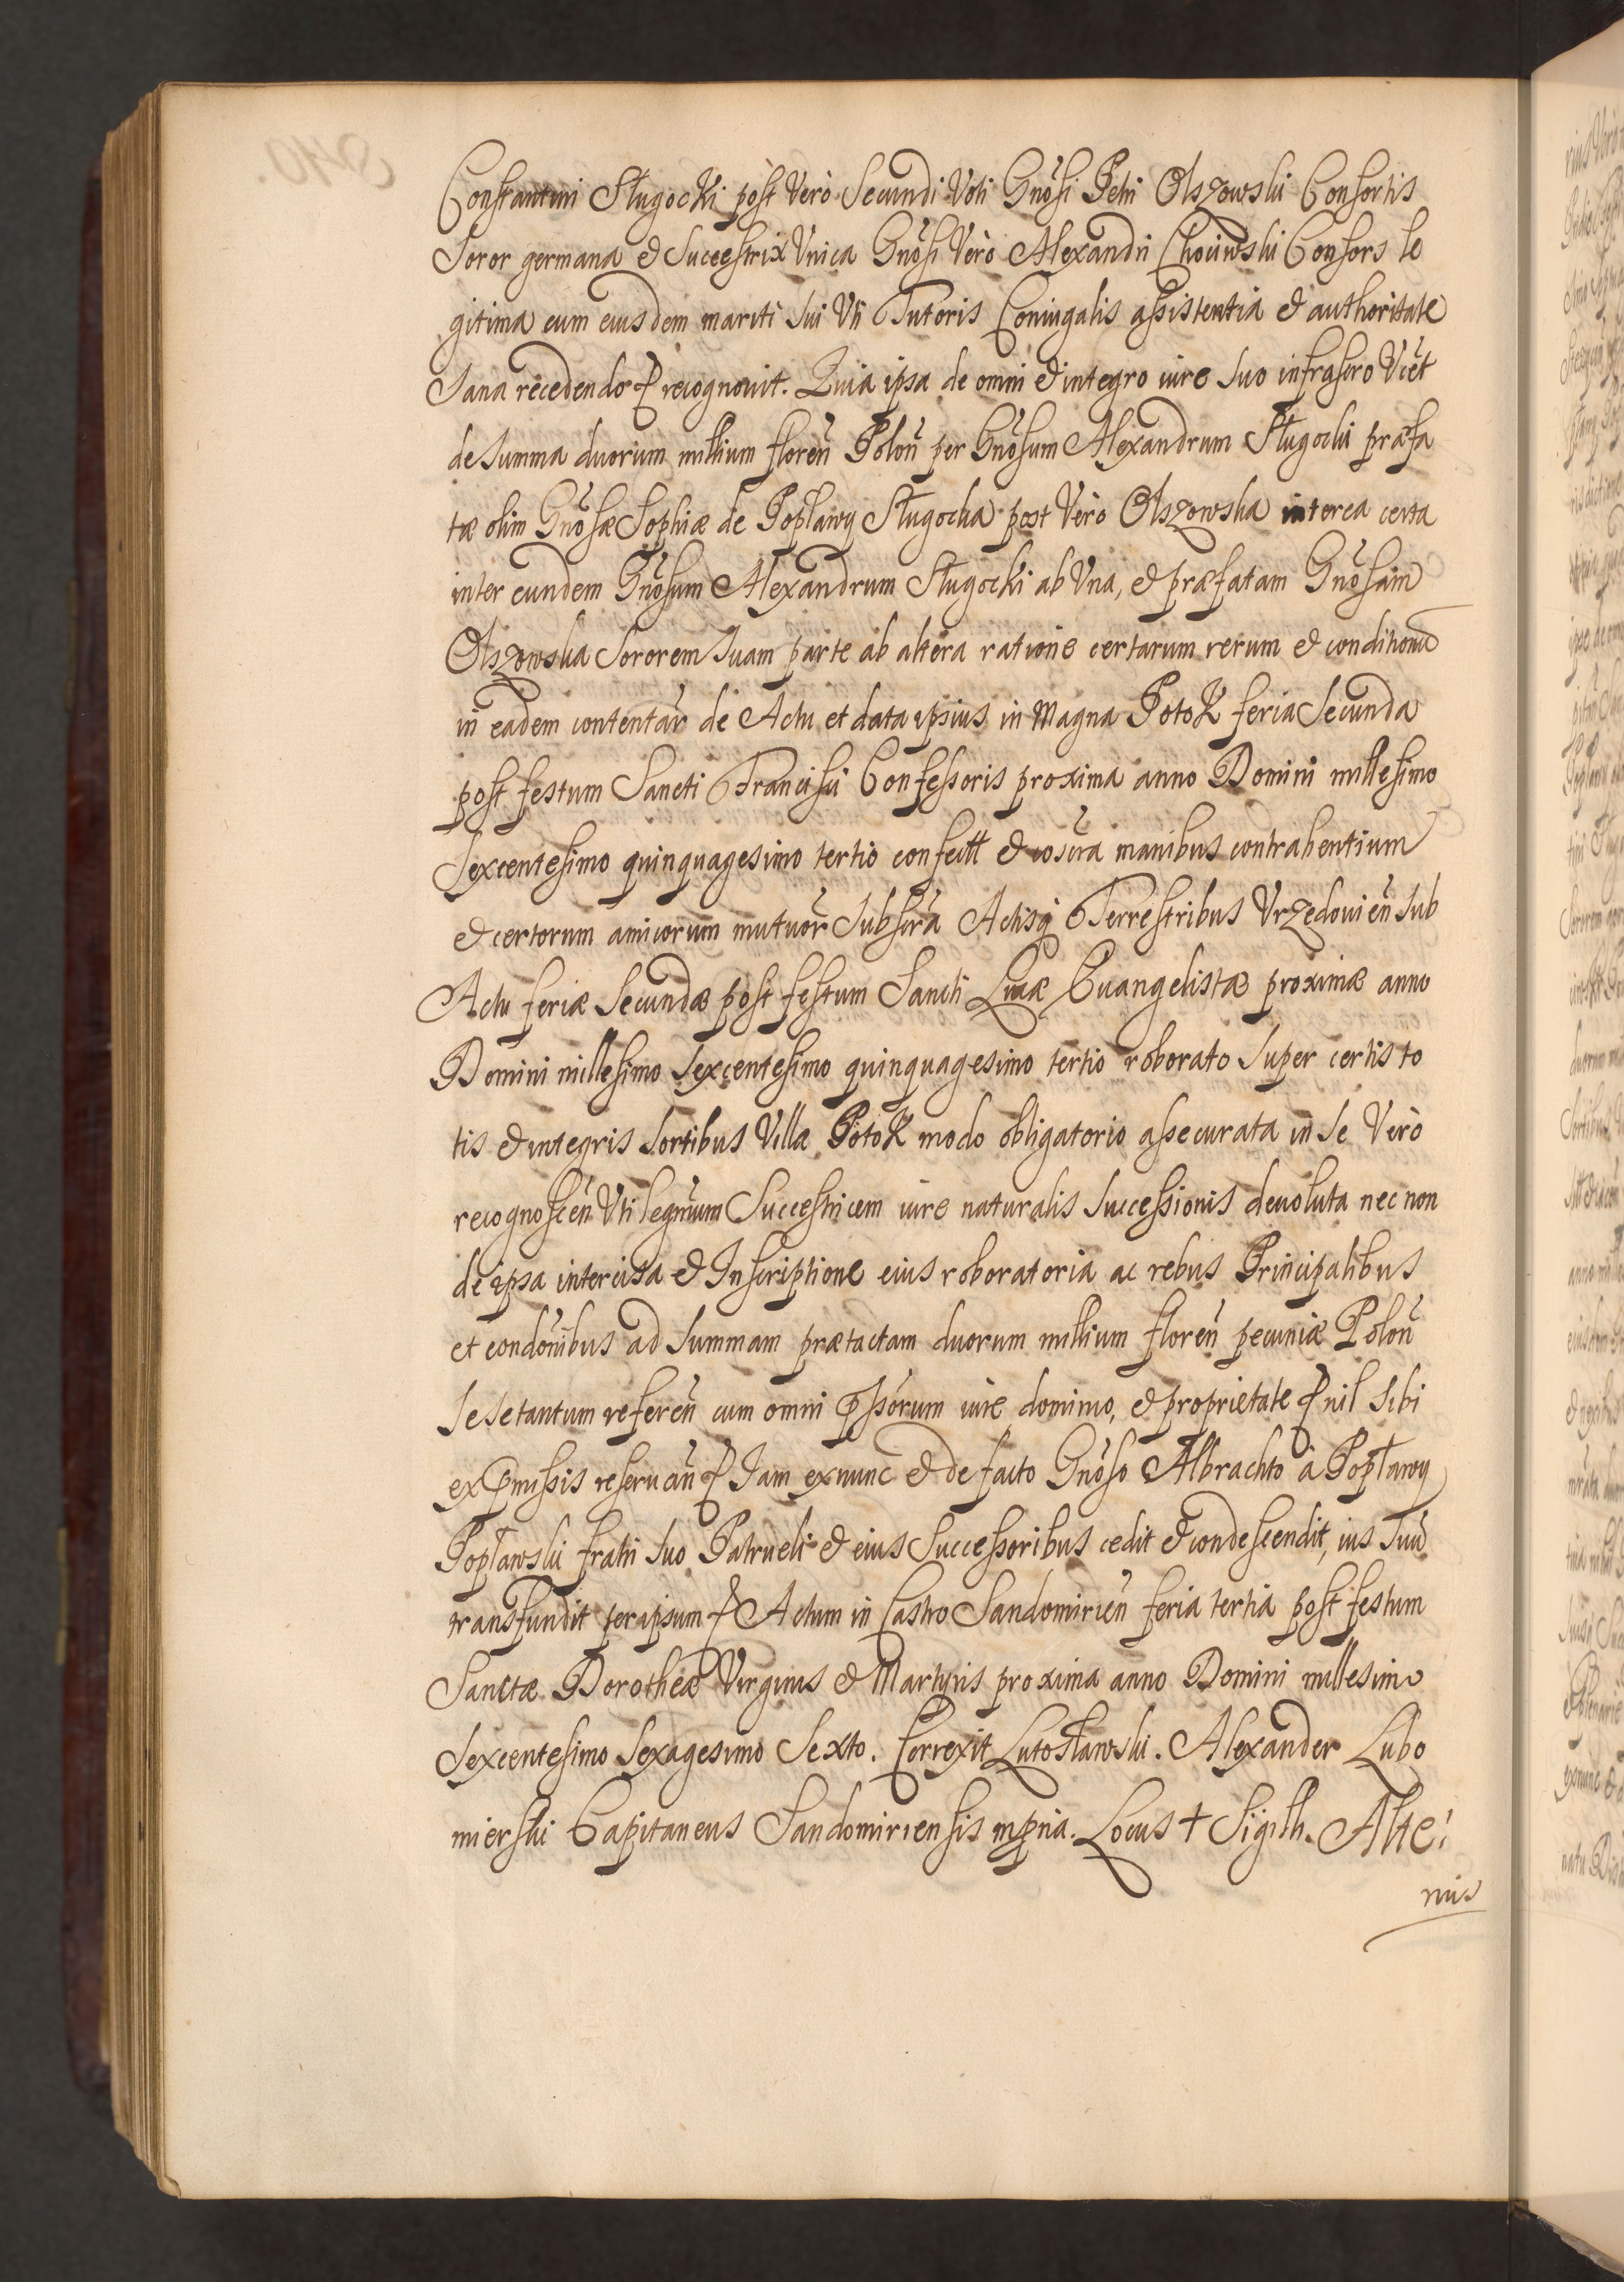 Constantini Sługocki post Verò Secundi Voti Gnosi Petri Olszowski Consortis
Soror germana et Successtrix Vnica Gnosi Verò Alexandri Chociwski Consors le
gitima cum eiusdem mariti sui Vti Tutoris Coniugalis assistentia et authoritate
Sana recedendo recognouit. Quia ipsa de omni et integro iure suo infrascro Vtět
de summa duorum millium floreñ Poloñ per Gnosum Alexandrum Sługocki præfa
tæ olim Gnosæ Sophiæ de Popławy Sługocka post Verò Olszowska interea certa
inter eundem Gnosum Alexandrum Sługocki ab Vna, et præfatam Gnosam
Olszowska Sororem suam parte ab altera ratione certarum rerum et conditionu
in eadem contentar de Actu et data ipsius in Magna Potok feria Secunda
post festum Sancti Francisci Confessoris proxima anno Domini millesimo
Sexcentesimo quinquagesimo tertio confectt et coscra manibus contrahentium
et certorum amicorum mutuor Subscra Actisq Terrestribus Vrzedouieñ sub
Actu feriæ Secundæ post festum Sancti Lucæ Euangelistæ proximæ anno
Domini millesimo sexcentesimo quinquagesimo tertio roborato super certis to
tis et integris sortibus Villæ Potok modo obligatorio assecurata in se Verò
recognosceñ Vti legitimam Successtricem iure naturalis successionis deuoluta nec non
de ipsa intercisa et Inscriptione eius roboratoria ac rebus Principalibus
et condonibus ad summam prætactam duorum millium floreñ pecuniæ Poloñ
sese tantum refereñ cum omni pssorum iure dominio, et proprietate nil sibi
ex pmissis reseruañ Iam exnunc et de facto Gnoso Albrachto à Popławy
Popławski fratri suo Patrueli et eius Successoribus cedit et condescendit, ius suu
transfundit per ipsum Actum in Castro Sandomirieñ feria tertia post festum
Sanctæ Dorotheæ Virginis et Martyris proxima anno Domini millesimo
Sexcentesimo sexagesimo Sexto. Correxit Lutosławski. Alexander Lubo
mierski Capitaneus Sandomiriensis mpria. Locus † Sigilli. Alte:
rius